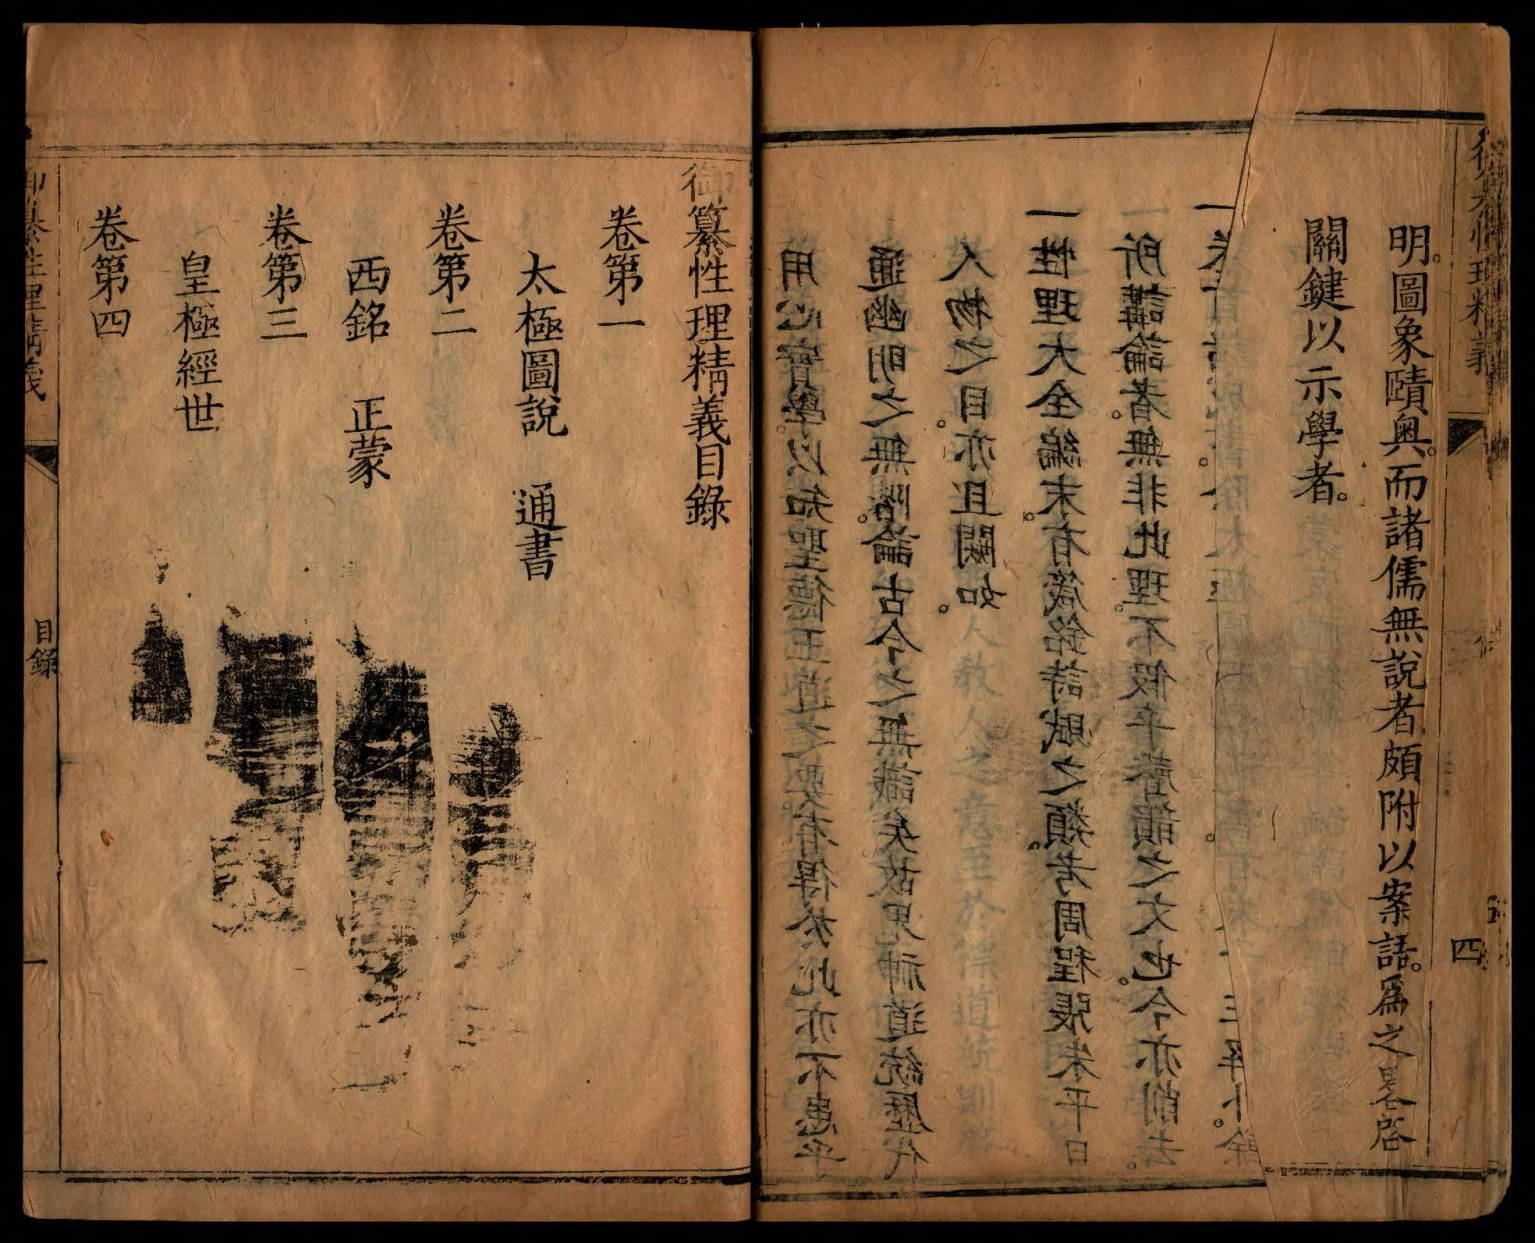 性理精義
四
明圖象賾奧。而諸儒無說者。頗附以案語。爲之畧啓
關鍵以示學者。
用心實學。以知聖德王道之要。有得於此亦不患乎
通幽明之無階。論古今之無識矣。故鬼神道統歷代
人物之目。亦且闕如。
一性理大全編末。有箴銘詩賦之類。考周程張朱平日
所講論者。無非此理。不假乎聲韻之文也。今亦刪去。
御纂性理精義目錄
卷第一
太極圖說　通書
卷第二
西銘　正蒙
卷第三
皇極經世
卷第四
御纂性理精義
目錄
一